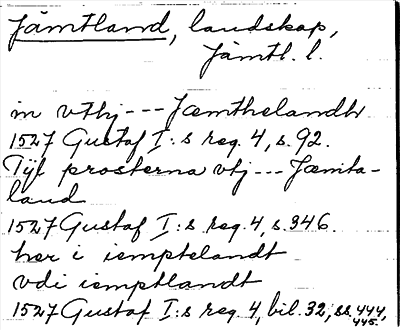 Jämtland, landskap,
Jämtl. l.
in vthj --- Jæmthelandh
1527 Gustaf I:s reg. 4, s. 92.
Tijl prosterna vtj --- Jæmta-
land
1527 Gustaf I:s reg. 4, s. 346.
her i iemptelandt
vdi iemptlandt
1527 Gustaf I:s reg. 4, bil. 32, ss. 444,
445.